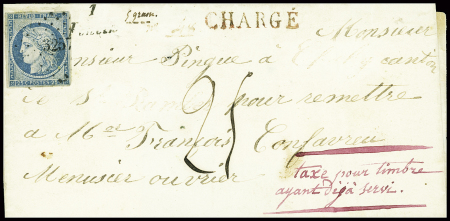 1
5 gram.
CHARGÉ
Monsieur
Monsieur Pingue à canton
pour remettre
a Mr François Confavreu
25
Menusier ouvrier
taxe pour timbre
ayant déjà servi.